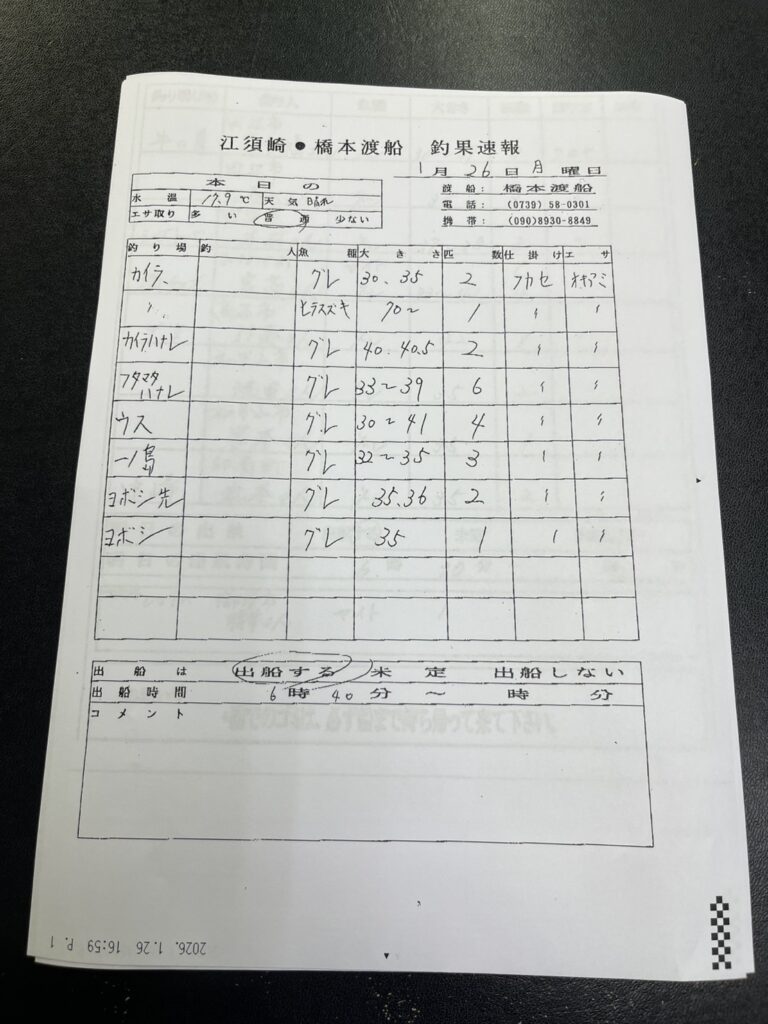 江須崎●橋本渡船 釣果速報
1月26日月曜日
本日の
水温 17.9℃ 天気 晴れ
エサ取り 多い 普通 少ない
渡船: 橋本渡船
電話: (0739) 58-0301
携帯: (090)8930-8849
釣り場 釣人 魚種 大きさ 匹数 仕掛け エサ
カイラ グレ 30.35 2 フカセ オキアミ
〃 ヒラスズキ 70〜 1 〃 〃
カイラハナレ グレ 40.40.5 2 〃 〃
フタマタハナレ グレ 33〜39 6 〃 〃
ウス グレ 30〜41 4 〃 〃
一ノ島 グレ 32〜35 3 〃 〃
ヨボシ先 グレ 35.36 2 〃 〃
ヨボシ グレ 35 1 〃 〃
出船は 出船する 未定 出船しない
出船時間 6時40分〜 時 分
コメント
2026. 1.26 16:59 P. 1